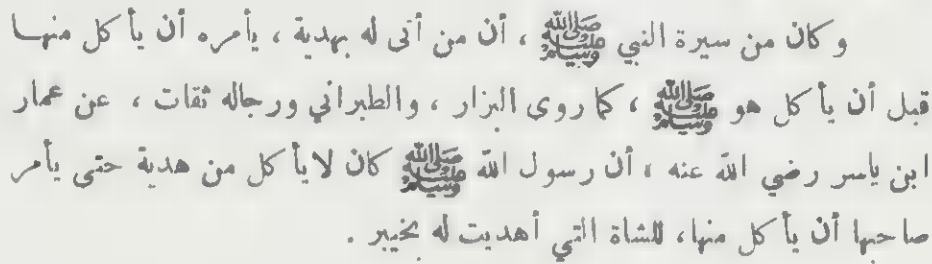 وكان من سيرة النبي ﷺ ، أن من أتى له بهدية ، يأمره أن يأكل منها
قبل أن يأكل هو ﷺ ، كما روى البزار ، والطبراني ورجاله ثقات ، عن عمار
ابن ياسر رضي الله عنه ، أن رسول الله ﷺ كان لا يأكل من هدية حتى يأمر
صاحبها أن يأكل منها، للشاة التي أهديت له بخيبر .